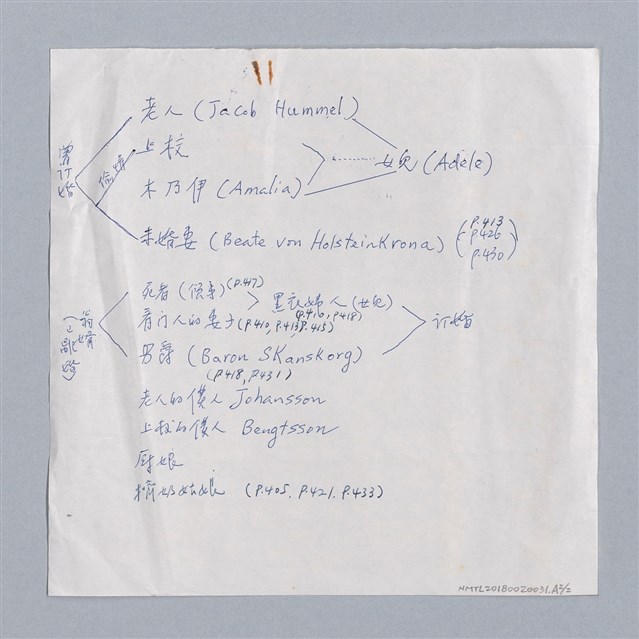 老人 (Jacob Hummel)
曾订婚
偷情
上校
女兒 (Adele)
木乃伊 (Amalia)
未婚妻 (Beate von Holsteinkrona) (p.413
p.426
p.430)
死者 (領事) (p.417)
黑衣婦人 (女兒)
(p.410, p.418)
看门人的妻子 (p.410, p.413, p.415)
订婚
翁婿
(已離婚)
男爵 (Baron Skanskorg)
(p.418, p.431)
老人的僕人 Johansson
上校的僕人 Bengtsson
厨娘
擠奶姑娘 (p.405, p.421, p.433)
NMTL20180020031.A2/2